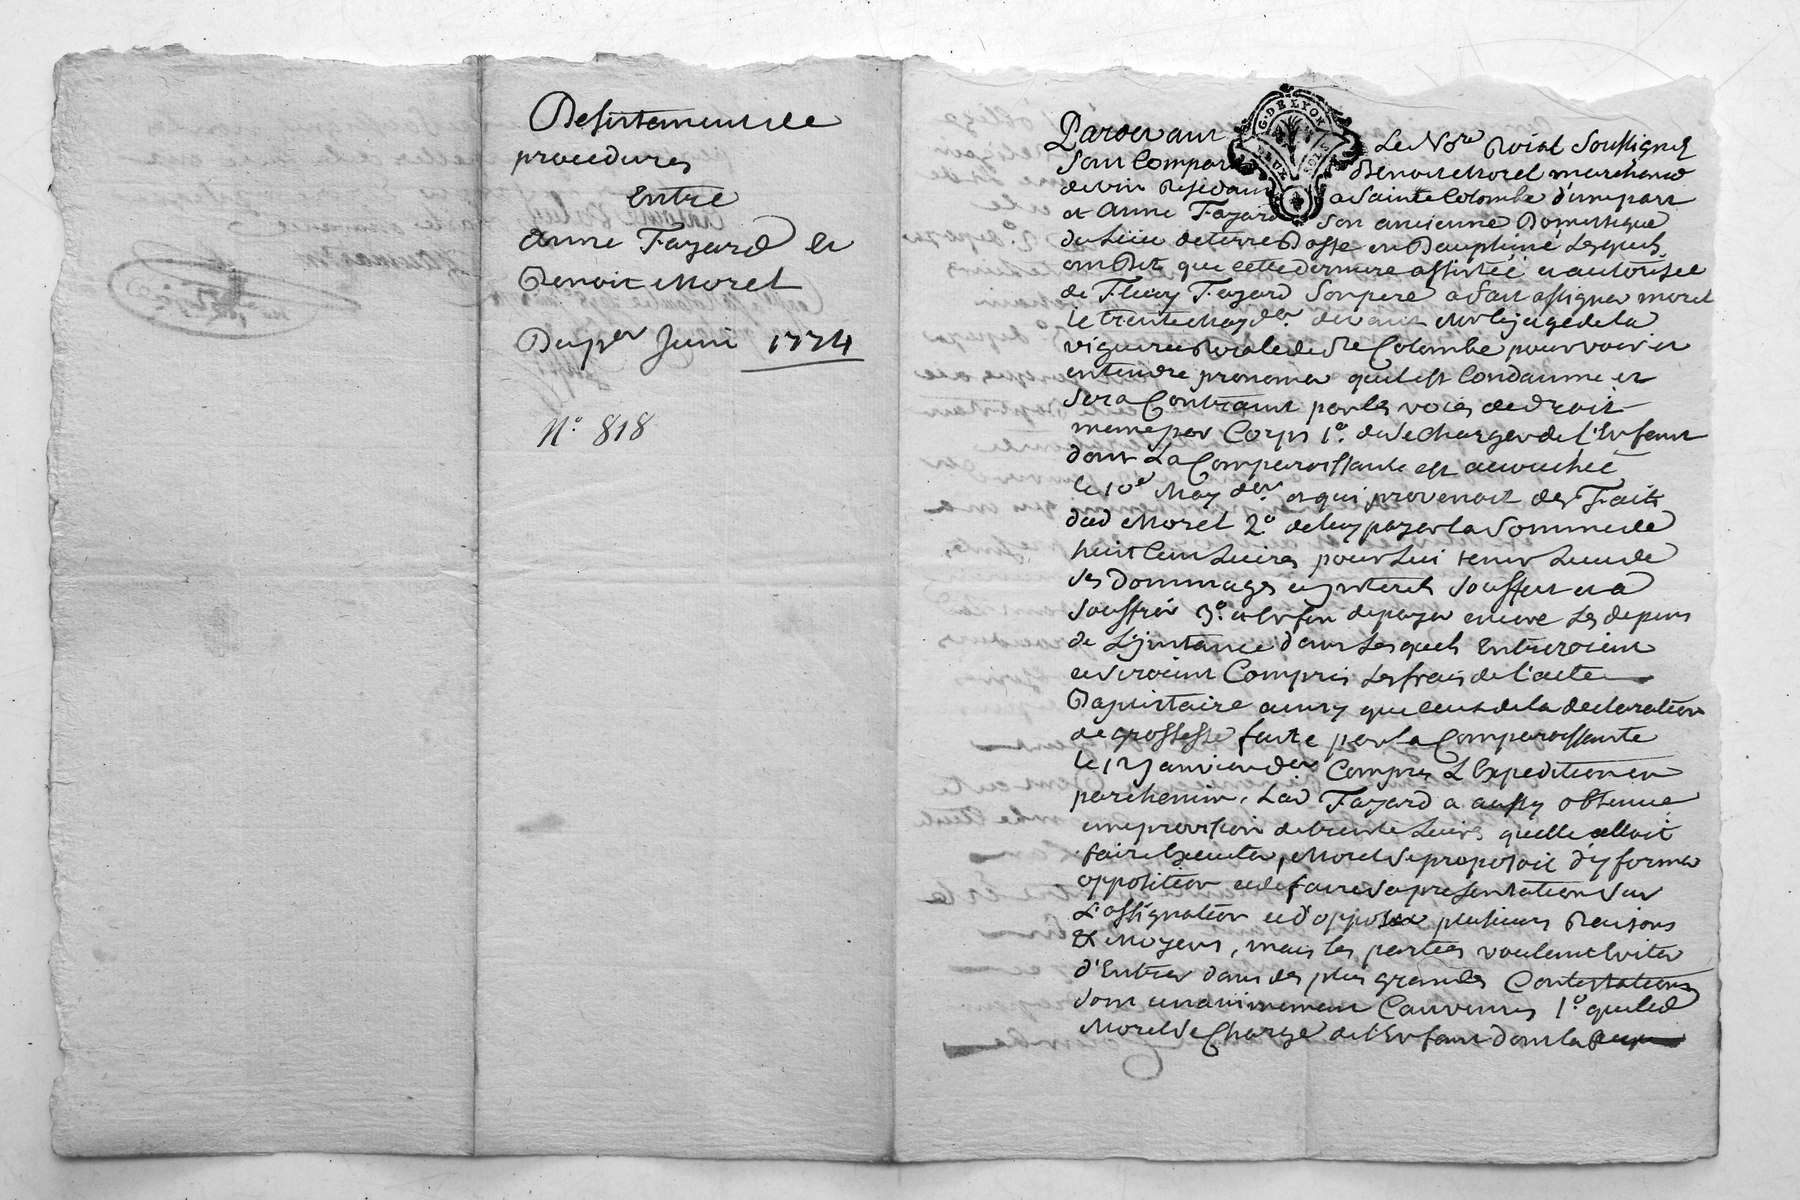 Desistement de
procedures
Entre
Anne Fayard et
Benoit Morel
Du per Juin 1774
N.° 818
G. DE LYON
DEUX SOLS
Pardevant Le Nore Roial Soussigné
Sont Comparu Benoit Morel marchand
de vin Residant a Sainte Colombe d'une part
et Anne Fayard son ancienne Domestique
du Lieu de terre Basse en Dauphiné Lesquels
ont Dit que cette derniere assistée et autorisée
de Fleury Fayard Son pere a fait assigner morel
le trente May der devant Mr le juge de la
viguerie Roiale de Ste Colombe pour voir et
entendre prononcer quil est Condamné et
Sera Contraint par les voies de droit
meme par Corps 1°. de se charger de l'Enfant
dont La Comparoissante est accouchée
le 10e May der. et qui provenoit des Faits
dud Morel 2°. de luy payer la Somme de
huit Cent Livres pour Lui tenir Lieu de
ses Dommages et jnterets souffert et a
souffrir 3°. et Enfin de payer encore Les depens
de L'jnstance dans Lesquels Entreroient
et seroient Compris Les frais de l'acte
Baptistaire aussy que ceux de la declaration
de grossesse faite par la Comparoissante
le 12 janvier der Compris L'Expedition en
parchemin. Lad Fayard a aussy obtenue
une provision de trente Livres quelle alloit
faire Executer, Morel se proposoit d'y former
opposition et de faire sa presentation sur
L'assignation et d'opposer plusieurs Raisons
& Moyens, mais les parties voulant Eviter
d'Entrer dans des plus grandes Contestations
sont unanimement Convenus 1° que led
Morel se Charge de l'Enfant dont la